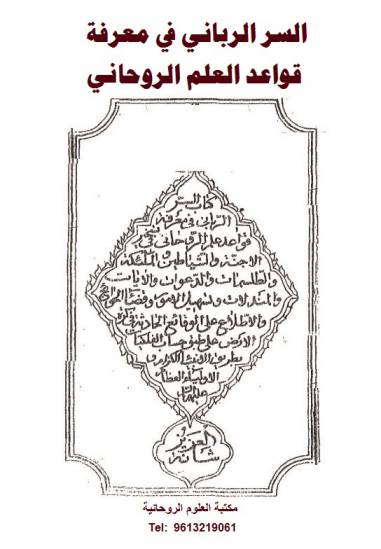 السر الرباني في معرفة
قواعد العلم الروحاني
كتاب السر
الرباني في معرفة
قواعد علم الروحاني في
الاجنة والشياطين والملئكة
والطلسمات والدعوات والايات
والمندلات وتسهيل الامور وقضا الحوائج
والاطلاع على الوقائع الحادثة في كرة
الارض على طبق حساب الفلكيا
بطريق الانبياء الكرام و
الاولياء العظام
عليهم
العزيز
شانه
مكتبة العلوم الروحانية
Tel: 9613219061